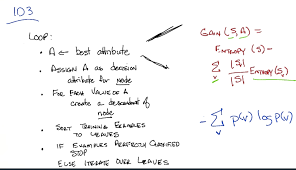 103
LOOP:
• A ← best attribute
• ASSIGN A AS decision
attribute for node
• FOR EACH VALUE OF A
create a descendent of
node
• SORT TRAINING EXAMPLES
TO LEAVES
• IF EXAMPLES PERFECTLY CLASSIFIED
STOP
ELSE ITERATE OVER LEAVES
GAIN (S,A) =
ENTROPY (S) -
∑ |Sᵥ| / |S| ENTROPY(Sᵥ)
v
- ∑ p(v) log p(v)
v